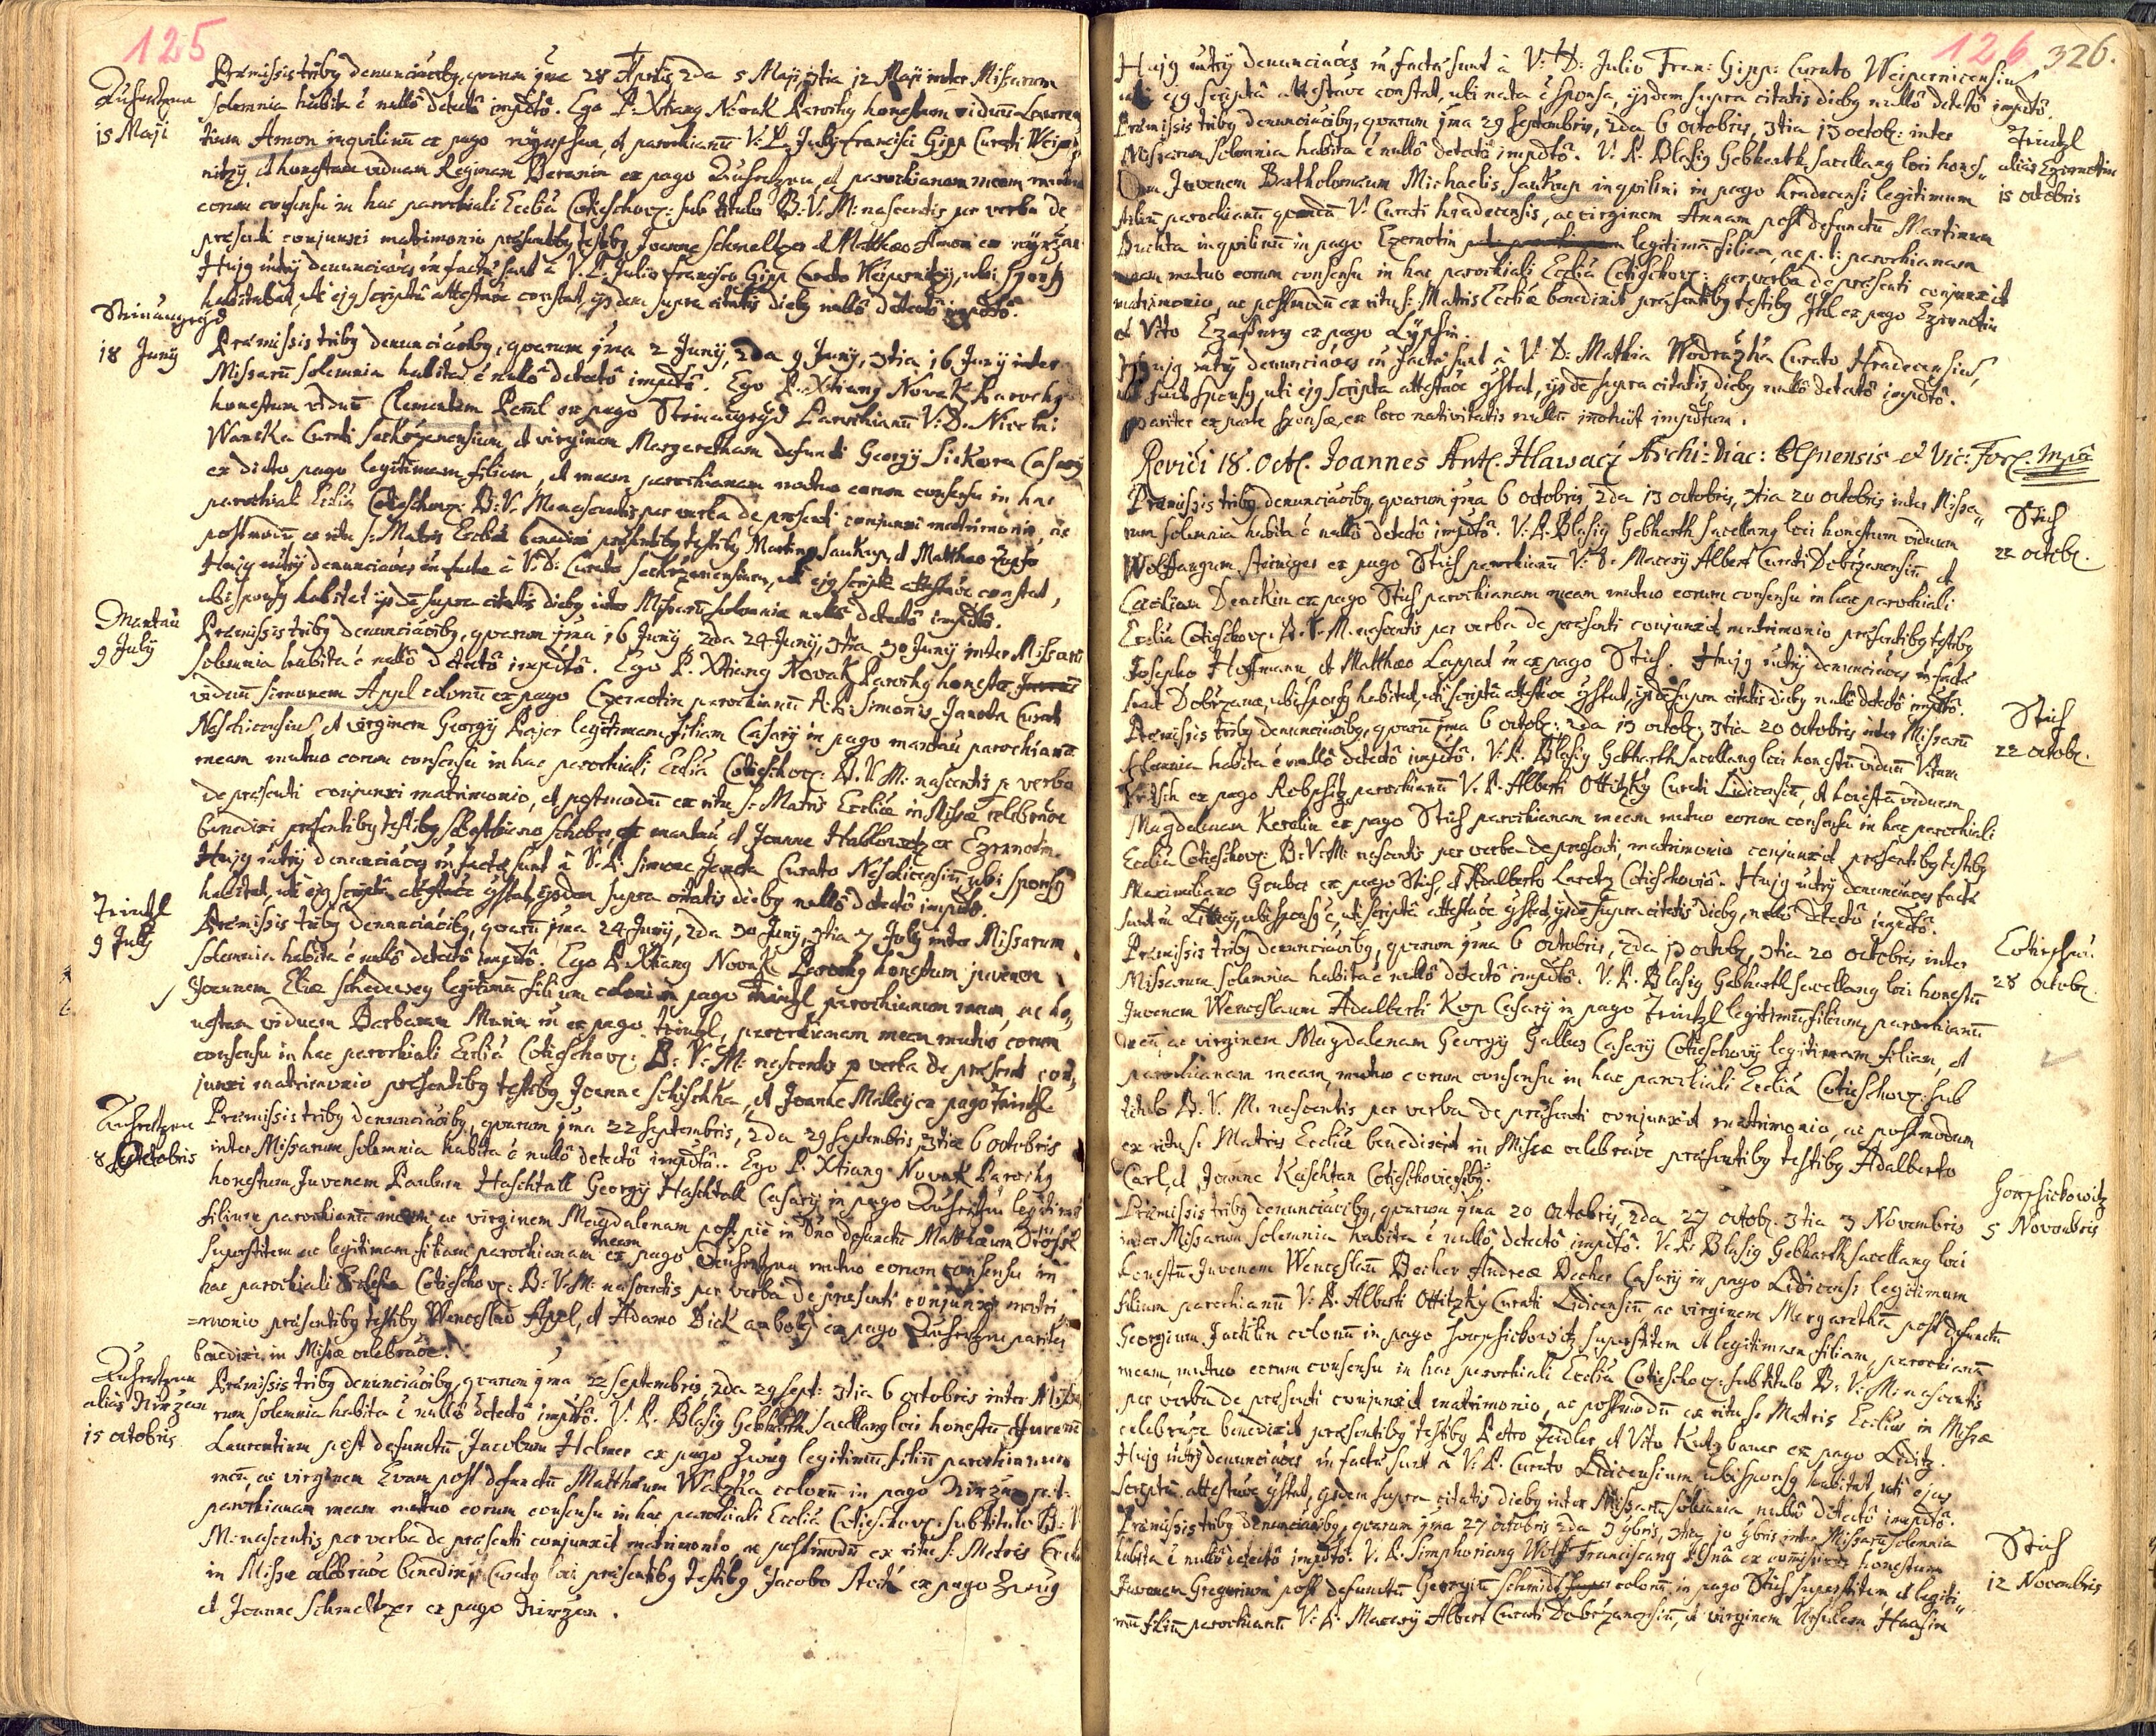 125
Præmissis tribꝰ denunciãoibꝰ, quarum 1ma 28 Aprilis, 2da 5 Maji, 3tia 12 Maji inter Missarum
15 Maji
solemnia habita é nullô detectô impdtô. Ego P. Xtianꝰ Novak Parochꝰ honestum viduũ Lauren
tium Amon inquilinũ ex pago et parochianũ V: D. Julij Francisci Gipp Curati Weiper
nitzij, et honestam viduam Reginam ex pago et parochianam meam mutuo
eorum consensu in hac parochiali Eccliâ Cotieschov: sub titulo B: V: M: nascentis per verba de
præsenti conjunxi matrimonio præsentibꝰ testibꝰ Joanne Schmeltzer et Matthæo Amon ex
Hujꝰ intrỹ denunciãoes in factæ sunt à V: D. Julio Francisco Gipp Curato Weipernitzij, ubi sponsꝰ
habitabat, uti ejꝰ scriptâ attestãoe constat, ijsdem supra citatis diebꝰ nullô detectô impdtô.
Steinaugezd
18 Junij
Præmissis tribꝰ denunciãoibꝰ, quarum 1ma 2 Junij, 2da 9 Junij, 3tia 16 Junij inter
Missarũ solemnia habita é nullô detectô impdtô. Ego P. Xtianꝰ Novak Parochꝰ
honestum viduũ Clementem ex pago Steinaugezd Parochianũ V: D. Nicolai
Wanska Curati et virginem Margaretham defuncti Georgij Siekora Casarij
ex dicto pago legitimam filiam, et meam parochianam mutuo eorum consensu in hac
parochiali Eccliâ Cotieschov: B: V: M: nascentis per verba de præsenti conjunxi matrimonio, ac
postmodũ ex ritu s: Matris Eccliæ benedixi præsentibꝰ testibꝰ Martino Saukup, et Matthæo
Hujꝰ intrỹ denunciãoes in factæ à V: D: Curato uti ejꝰ scripta attestãoe constat,
ubi sponsꝰ habitat ijsdẽ supra citatis diebꝰ inter Missarũ solemnia nullô detectô impdtô.
Mantau
9 July
Præmissis tribꝰ denunciãoibꝰ, quarum 1ma 16 Junij, 2da 24 Junij, 3tia 30 Junij inter Missarũ
solemnia habita é nullô detectô impdtô. Ego P. Xtianꝰ Novak Parochꝰ honestũ
viduũ Simonem Appl colonũ ex pago Czernotin parochianũ A: R: Simonis Janota Curati
et virginem Georgij Bajer legitimam filiam Casarij in pago mantau parochianã
meam mutuo eorum consensu in hac parochiali Eccliâ Cotieschov: B: V: M: nascentis p verba
de præsenti conjunxi matrimonio, et postmodũ ex ritu s: Matris Eccliæ in Missæ celebrãoe
benedixi præsentibꝰ testibꝰ Sebastiano Schober, ex mantau et Joanne ex Czernotin.
Hujꝰ intrỹ denunciãoes in factæ sunt à V: R: Simone Janota Curato ubi sponsꝰ
habitat, uti ejꝰ scriptâ attestãoe gstat, ijsdem supra citatis diebꝰ nullô detectô impdtô.
Zrintzl
9 July
Præmissis tribꝰ denunciãoibꝰ, quarũ 1ma 24 Junij, 2da 30 Junij, 3tia 7 July inter Missarum
solemnia habita é nullô detectô impdtô. Ego P. Xtianꝰ Novak Parochꝰ honestum juvenem
Joannem Eliæ legitimũ filium coloni in pago parochianum meum, ac ho,
nestam viduam Barbaram in ex pago parochianam meam mutuo eorum
consensu in hac parochiali Eccliâ Cotieschov: B: V: M: nascentis p verba de præsenti con,
junxi matrimonio præsentibꝰ testibꝰ Joanne Schischka, et Joanne ex pago
8 Octobris
Præmissis tribꝰ denunciãoibꝰ, quarum 1ma 22 Septembris, 2da 29 Septembris, 3tia 6 octobris
inter Missarum solemnia habita é nullô detectô impdtô. Ego P: Xtianꝰ Novak Parochꝰ
honestum Juvenem Paulum Haschtall Georgij Haschtall Casarij in pago legitimũ
filium parochianũ meum ac virginem Magdalenam post piè in Dno defunctũ Matthæum
superstitem ac legitimam filiam parochianam meam ex pago mutuo eorum consensu in
hac parochiali Ecclesia Cotieschov: B: V: M: nascentis per verba de præsenti conjunxi matri
=monio præsentibꝰ testibꝰ Wenceslao Apel, et Adamo Bick ambobꝰ ex pago pariter
benedixi in Missæ celebrãoe.
alias Nirzan
15 octobris
Præmissis tribꝰ denunciãoibꝰ, quarum 1ma 22 Septembris, 2da 29 Sept: 3tia 6 octobris inter Missa
rum solemnia habita é nullô detectô impdtô. V: R: Blasiꝰ Gebharth Sacellanꝰ loci honestũ Juvenẽ
Laurentium post defunctũ Jacobum Helmer ex pago Zwug legitimũ filiũ parochianum
meũ, ac virginem Evam post defunctũ Matthæum Watzka colonũ in pago Nirzan p: t:
parochianam meam mutuo eorum consensu in hac parochiali Eccliâ Cotieschov: sub titulo B: V:
M: nascentis per verba de præsenti conjunxit matrimonio ac postmodũ ex ritu s: Matris Eccliæ
in Missæ celebrãoe benedixit Curatꝰ loci præsentibꝰ testibꝰ Jacobo Stork ex pago Zwug
et Joanne Schmeltzer ex pago Nirzan.
126 326.
Hujꝰ intrỹ denunciãoes in factæ sunt à V: D: Julio Fran: Gipp: Curato Weipernicensiũ
uti ejꝰ scriptâ attestãoe constat, ubi nata é sponsa, ijsdem supra citatis diebꝰ nullô detectô impdtô.
Zrintzl
alias Czernotin
15 octobris
Præmissis tribꝰ denunciãoibꝰ, quarum 1ma 29 Septembris, 2da 6 octobris, 3tia 13 octob: inter
Missarum solemnia habita é nullô detectô impdtô. V: R: Blasiꝰ Gebharth Sacellanꝰ loci hones,,
tum Juvenem Bartholomæum Michaelis Saukup inquilini in pago hradecensi legitimum
filiũ parochianũ V: Curati hradecensis, ac virginem Annam post defunctũ Martinum
Buchta inquilinũ in pago Czernotin legitimã filiam, ac p: t: parochianam
meam mutuo eorum consensu in hac parochiali Eccliâ Cotieschov: per verba de præsenti conjunxit
matrimonio, ac postmodũ ex ritu s: Matris Eccliæ benedixit præsentibꝰ testibꝰ ex pago Czernotin
et Vito ex pago
Hujꝰ intrỹ denunciãoes in factæ sunt à V: D: Mathia Wodrazka Curato Hradecensiũ,
ubi fuit sponsꝰ, uti ejꝰ scripta attestãoe gstat, ijsdẽ supra citatis diebꝰ nullô detectô impdtô.
pariter ex parte sponsæ, ex loco nativitatis nullũ innotuit impdtum.
Revici 18. Oct. Joannes Ant. Hlawacz Archi: Diac: Plsnensis et Vic: For. mpa
Stich
22 octob.
Præmissis tribꝰ denunciãoibꝰ, quarum 1ma 6 octobris 2da 13 octobris, 3tia 20 octobris inter Missa,,
rum solemnia habita é nullô detectô impdtô. V: R: Blasiꝰ Gebharth Sacellanꝰ loci honestum viduum
Wolffangum Steiniger ex pago Stich parochianũ V: D. Macarij Albert Curati Dobrzanensiũ et
Cæciliam Denckin ex pago Stich parochianam meam mutuo eorum consensu in hac parochiali
Eccliâ Cotieschov: B: V: M: nascentis per verba de præsenti conjunxit matrimonio præsentibꝰ testibꝰ
Josepho Hoffmann, et Matthæo Lappat in ex pago Stich. Hujꝰ intrỹ denunciãoes in factæ
sunt Dobrzanæ, ubi sponsꝰ habitat, uti scriptâ attestãoe gstat, ijsdẽ supra citatis diebꝰ nullô detectô impdtô.
Stich
22 octob.
Præmissis tribꝰ denunciãoibꝰ, quarũ 1ma 6 octob: 2da 13 octob: 3tia 20 octobris inter Missarũ
solemnia habita é nullô detectô impdtô. V: R: Blasiꝰ Gebharth Sacellanꝰ loci honestũ viduũ Vitum
ex pago parochianũ V: R: Alberti Ottitzky Curati Lidicensiũ, et honestã viduam
Magdalenam Kerelin ex pago Stich parochianam meam mutuo eorum consensu in hac parochiali
Eccliâ Cotieschov: B: V: M: nascentis per verba de præsenti matrimonio conjunxit præsentibꝰ testibꝰ
Maximiliano Gruber ex pago Stich, et Adalberto Cotieschoviô. Hujꝰ intrỹ denunciãoes factæ
sunt in Littitz, ubi sponsꝰ é, uti scripta attestãoe gstat, ijsdẽ supra citatis diebꝰ, nullô detectô impdtô.
28 octob.
Præmissis tribꝰ denunciãoibꝰ, quarum 1ma 6 octobris, 2da 13 octob, 3tia 20 octobris inter
Missarum solemnia habita é nullô detectô impdtô. V: R: Blasiꝰ Gebharth Sacellanꝰ loci honestũ
Juvenem Wenceslaum Adalberti Kop Casarij in pago Zrintzl legitimũ filium, parochianũ
meũ, ac virginem Magdalenam Georgij Gallus Casarij Cotieschovij legitimam filiam, et
parochianam meam, mutuo eorum consensu in hac parochiali Eccliâ Cotieschov: sub
titulo B: V: M: nascentis per verba de præsenti conjunxit matrimonio, ac postmodum
ex ritu s: Matris Eccliæ benedixit in Missæ celebrãoe præsentibꝰ testibꝰ Adalberto
Carl, et Joanne Kaschtan Cotieschoviensibꝰ.
5 Novembris
Præmissis tribꝰ denunciãoibꝰ, quarum 1ma 20 octobris, 2da 27 octob: 3tia 3 Novembris
inter Missarum solemnia habita é nullô detectô impdtô. V: R: Blasiꝰ Gebharth Sacellanꝰ loci
honestũ Juvenem Wenceslaũ Becher Andreæ Becher Casarij in pago Lidicensi legitimum
filium parochianũ V: R: Alberti Ottitzky Curati Lidicensiũ ac virginem Margarethã post defunctũ
Georgium colonũ in pago superstitem et legitimam filiam, parochianã
meam, mutuo eorum consensu in hac parochiali Eccliâ Cotieschov: sub titulo B: V: M: nascentis
per verba de præsenti conjunxit matrimonio, ac postmodũ ex ritu s: Matris Eccliæ in Missæ
celebrãoe benedixit præsentibꝰ testibꝰ Petro Zeidler, et Vito Kutzbauer ex pago Liditz.
Hujꝰ intrỹ denunciãoes in factæ sunt à V: R: Curato Lidicensium ubi sponsꝰ habitat, uti ejus
scriptâ attestãoe gstat, ijsdem supra citatis diebꝰ inter Missarũ solemnia nullô detectô impdtô.
Stich
12 Novembris
Præmissis tribꝰ denunciãoibꝰ, quarum 1ma 27 octobris 2da 3 9bris, 3tia 10 9bris inter Missarũ solemnia
habita é nullô detectô impdtô. V: R: Simphorianꝰ Wolf Franciscanꝰ ex honestum
Juvenem Gregorium post defunctũ Georgiũ Schmidt colonũ in pago Stich superstitem et legiti,,
mũ filiũ parochianũ V: R: Macarij Albert Curati Dobrzanensiũ, et virginem Ursulam Haasin